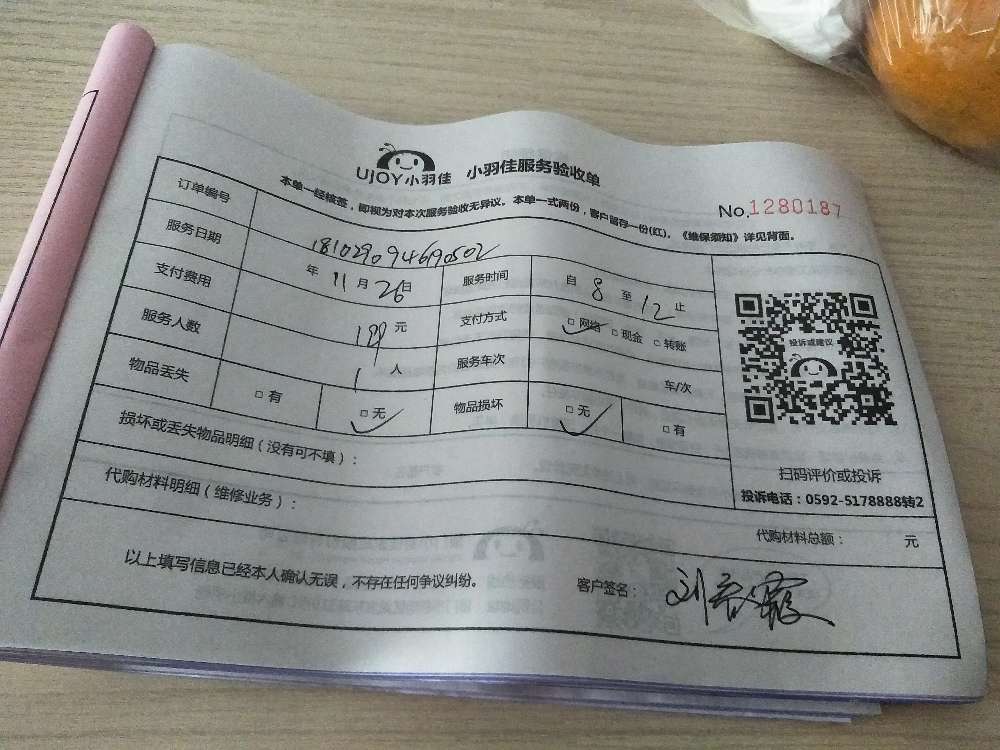 UJOY小羽佳 小羽佳服务验收单
No.1280187
本单一经核签，即视为对本次服务验收无异议。本单一式两份，客户留存一份(红)。《维保须知》详见背面。
订单编号 181029094690502
服务日期 年 11 月 26 日 服务时间 自 8 至 12 止
支付费用 199 元 支付方式 □ 网络 □ 现金 □ 转账
服务人数 1 人 服务车次 车/次
物品丢失 □ 有 □ 无 物品损坏 □ 无 □ 有
投诉或建议
扫码评价或投诉
投诉电话：0592-5178888转2
损坏或丢失物品明细（没有可不填）：
代购材料明细（维修业务）：
代购材料总额： 元
以上填写信息已经本人确认无误，不存在任何争议纠纷。 客户签名：